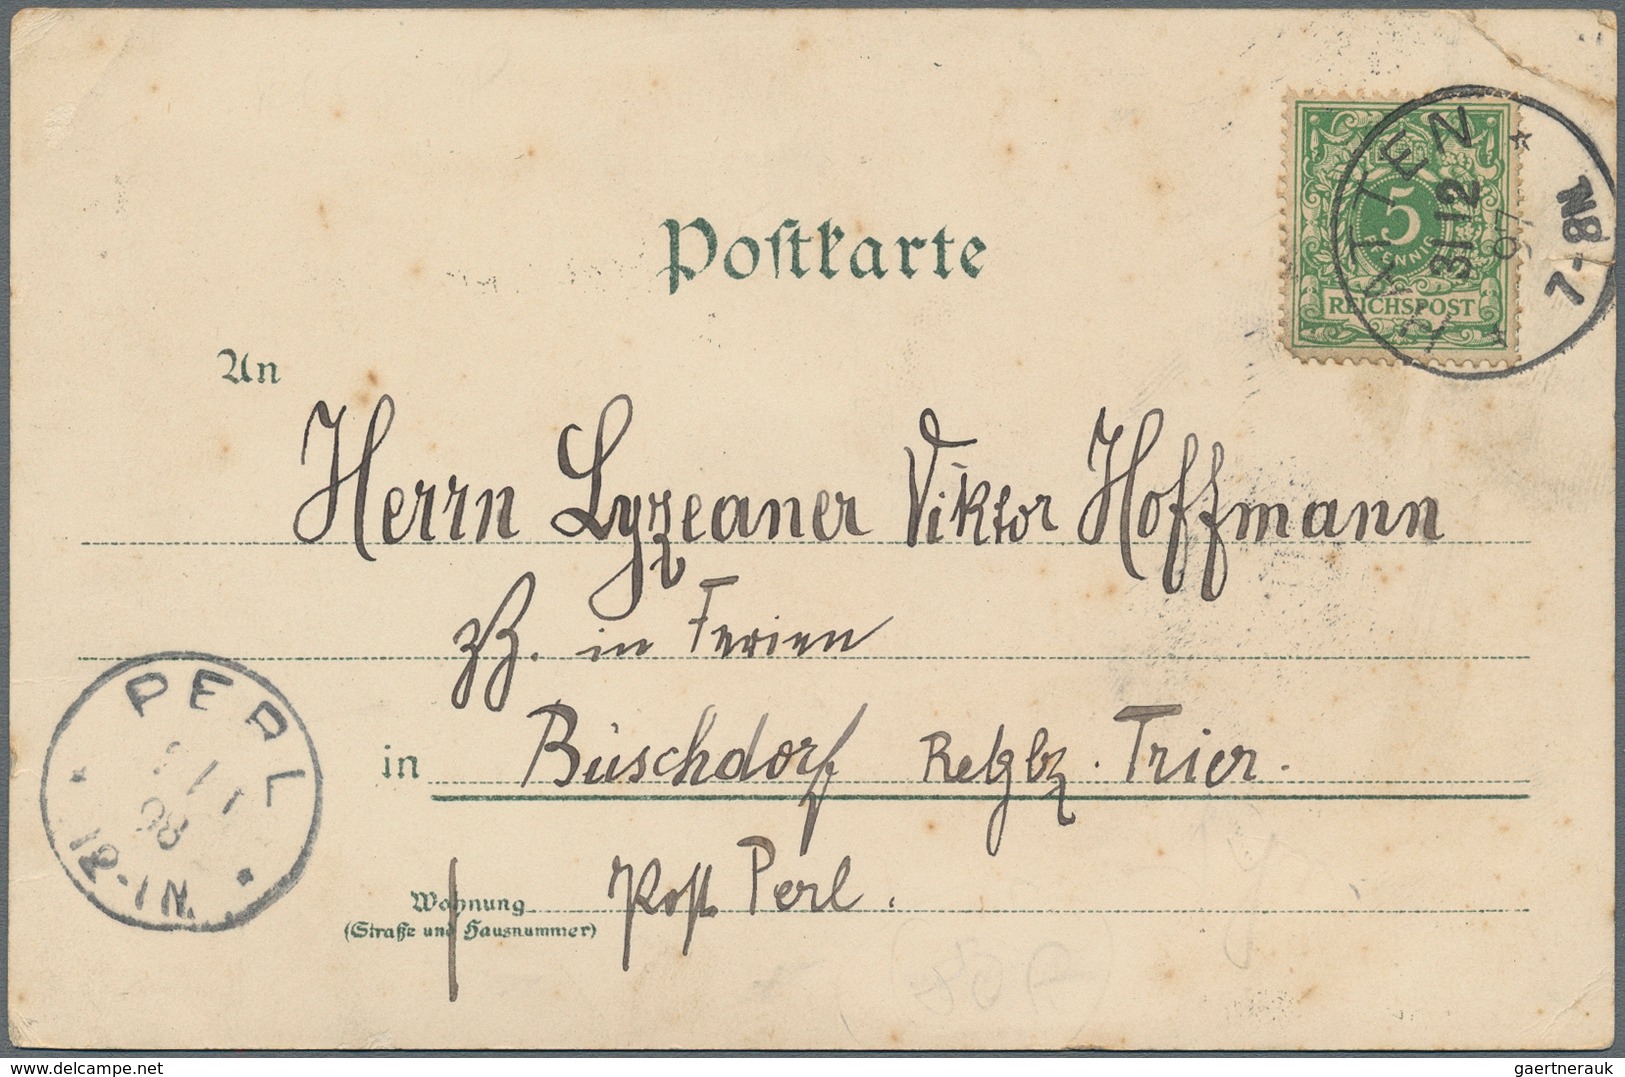 Postkarte
5
PFENNIG
REICHSPOST
31 12
97
7-8N
An
Herrn Lyzeaner Viktor Hoffmann
zZ. in Ferien
in Büschdorf Rełgbz. Trier.
Wohnung
(Straße und Hausnummer)
Post Perl.
PERL
1 1
98
12-1N.
delcampe.net
gaertnerauk